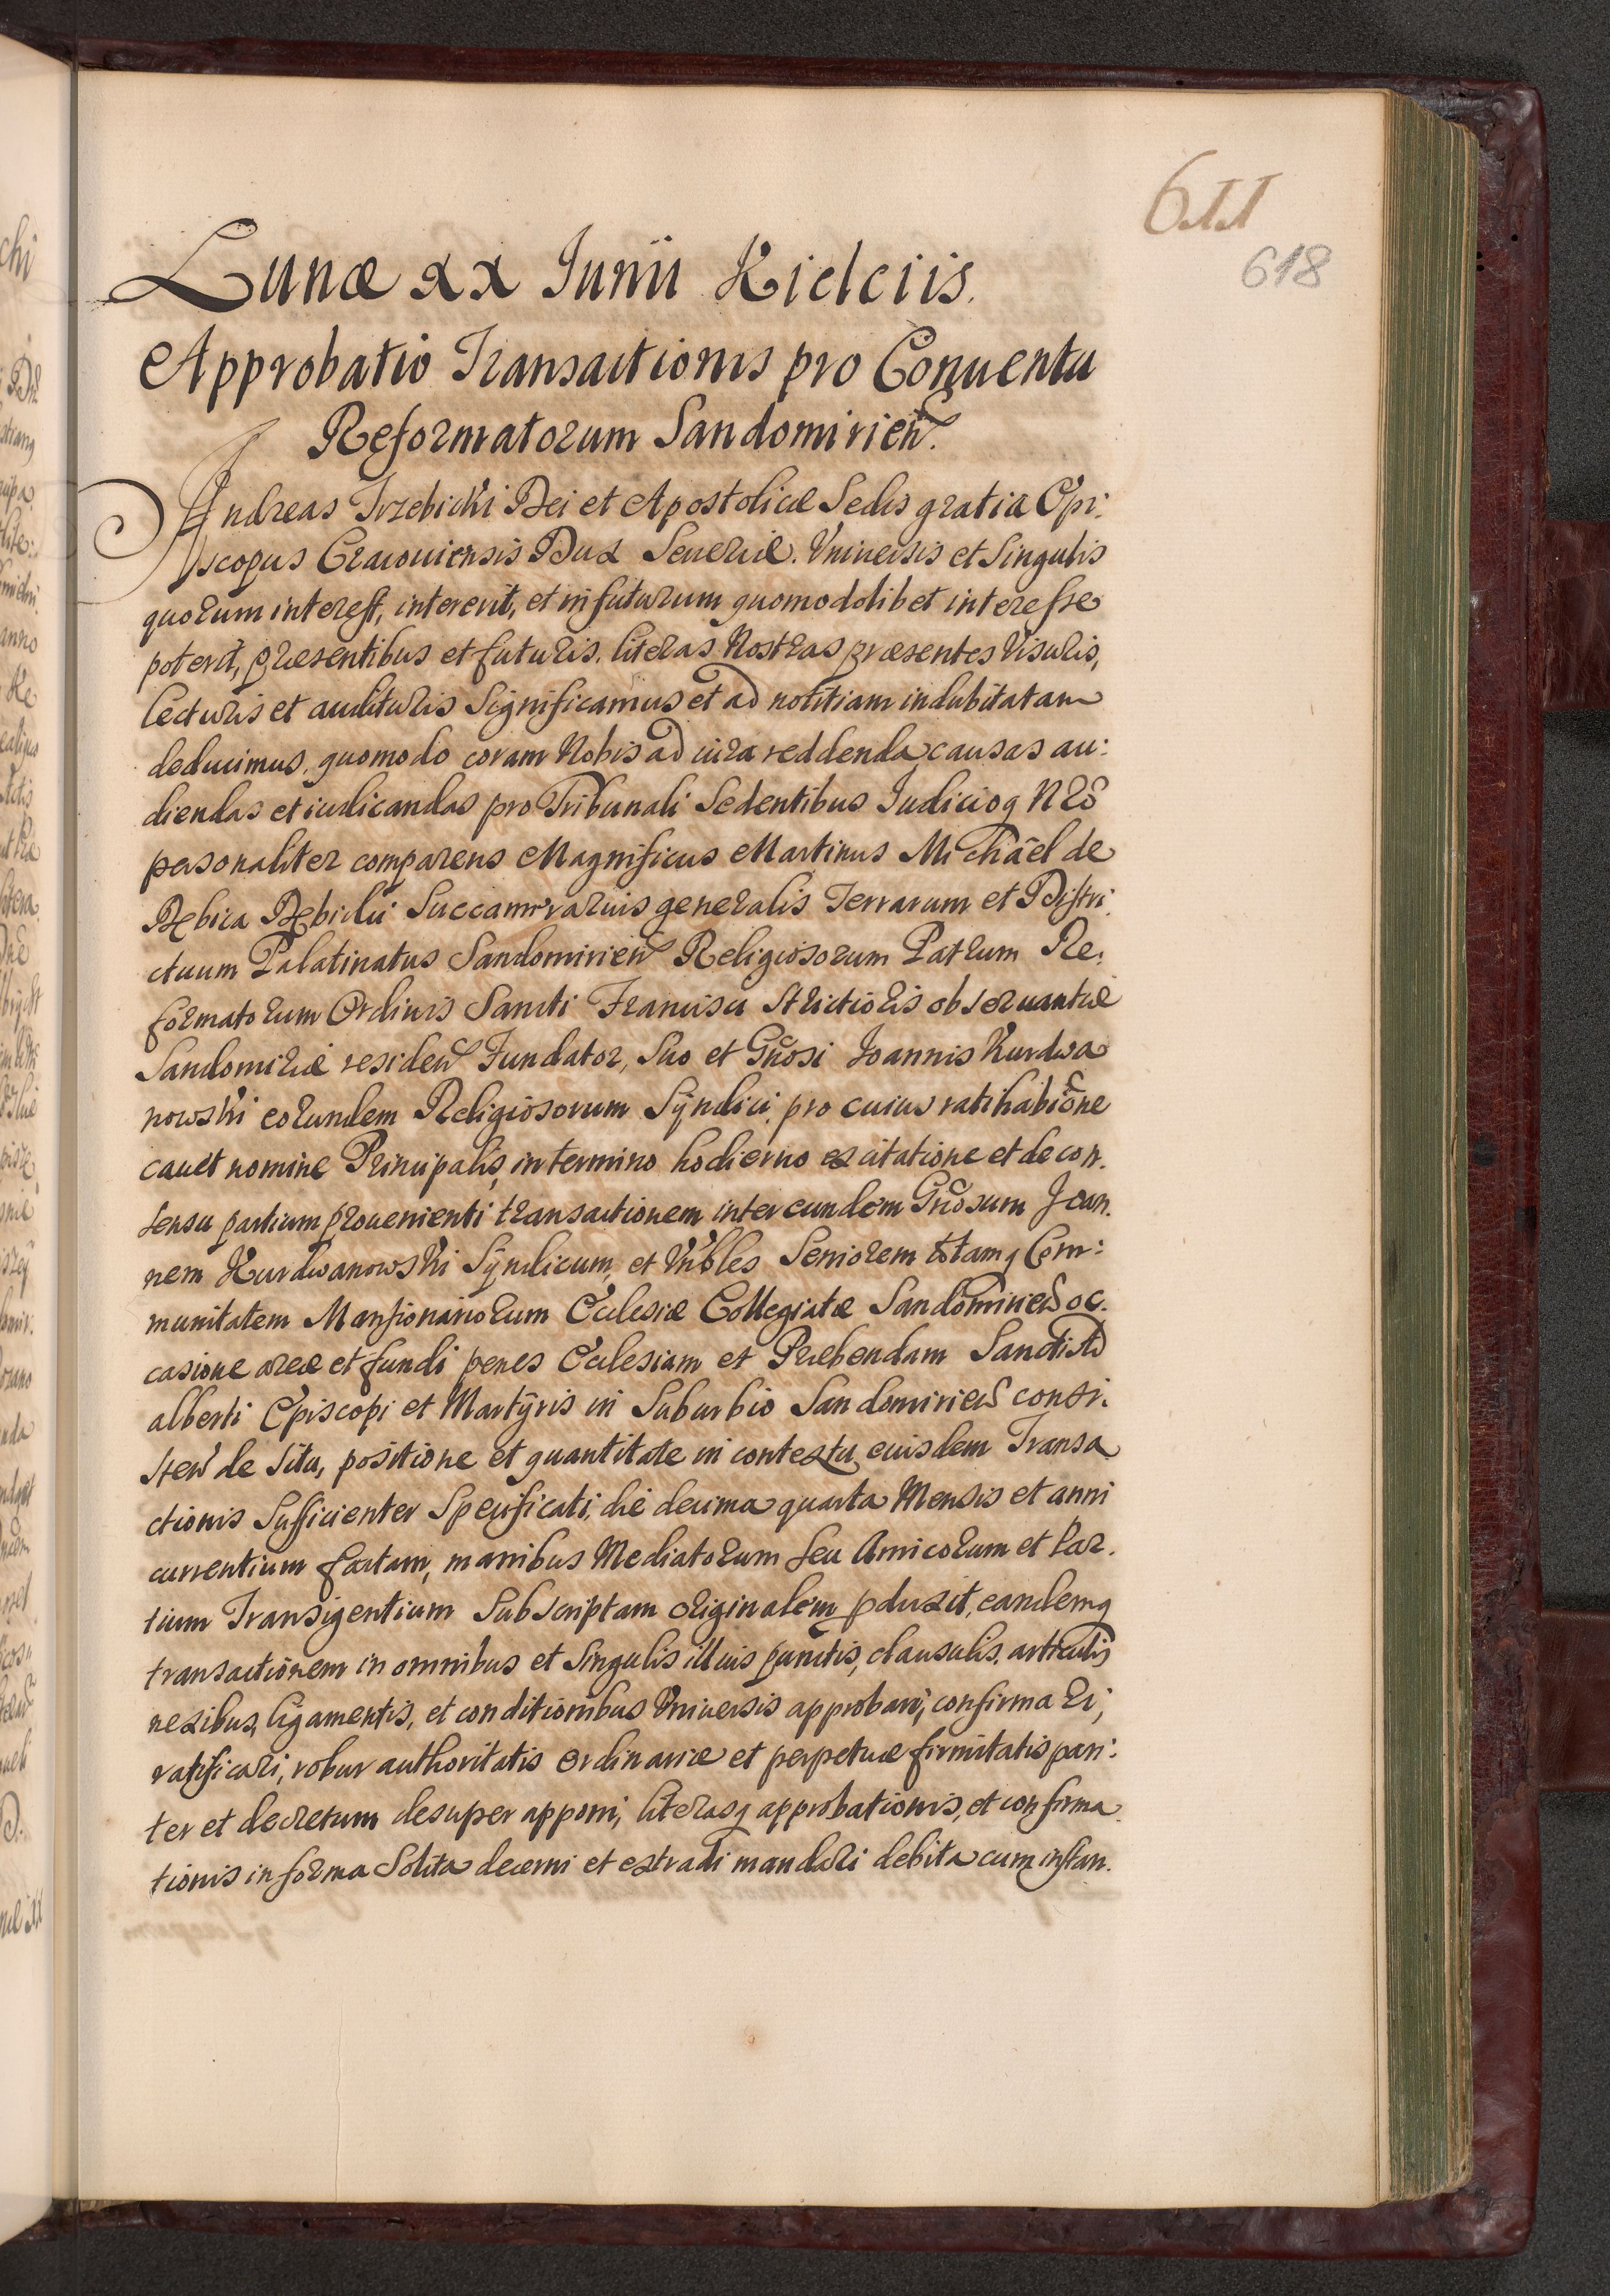 611
618
Lunæ xx Junii Kielciis.
Approbatio Transactionis pro Conuentu
Reformatorum Sandomirien̄.
Andreas Trzebicki Dei et Apostolicæ Sedis gratia Epi:
scopus Cracouiensis Dux Seueriæ. Vniuersis et Singulis
quorum interest, intererit, et in futurum quomodolibet interesse
poterit, præsentibus et futuris. literas Nostras præsentes Visuris,
lecturis et audituris Significamus et ad notitiam indubitatam
deducimus, quomodo coram Nobis ad iura reddenda, causas au:
diendas et iudicandas pro Tribunali Sedentibus Iudicioq Nr̃o
personaliter comparens Magnificus Martinus Michäel de
Dębica Dębicki Succamerarius generalis Terrarum et Distri:
ctuum Palatinatus Sandomirien̄ Religiosorum Patrum Re:
formatorum Ordinis Sancti Francisci Strictioris obseruantiæ
Sandomiriæ residen̄ Fundator, Suo et Gñosi Joannis Kurdwa
nowski eorundem Religiosorum Sÿndici, pro cuius ratihabiõne
cauet nomine Principalis, in termino hodierno ex citatione et de con.
sensu partium prouenienti transactionem inter eundem Gñosum Joan.
nem Kurdwanowski Sÿndicum, et Vnbles Seniorem totamq Com:
munitatem Mansionariorum Ecclesiæ Collegiatæ Sandomirien̄ oc.
casione areæ et fundi penes Ecclesiam et Præbendam Sancti Ad
alberti Episcopi et Martÿris in Suburbio Sandomirien̄ consi.
sten̄ de Situ, positione et quantitate in contextu eiusdem Transa
ctionis Sufficienter Specificati, die decima quarta Mensis et anni
currentium factam, manibus Mediatorum seu Amicorum et Par.
tium Transigentium Subscriptam originalem pduxit, eandemq
transactionem in omnibus et Singulis illius punctis, clausulis, articulis
nexibus, ligamentis, et conditionibus Vniuersis approbari, confirmari,
ratificari, robur authoritatis ordinariæ et perpetuæ firmitatis pari:
ter et decretum desuper apponi, literasq approbationis, et confirma.
tionis in forma Solita decerni et extradi mandari debita cum instan.